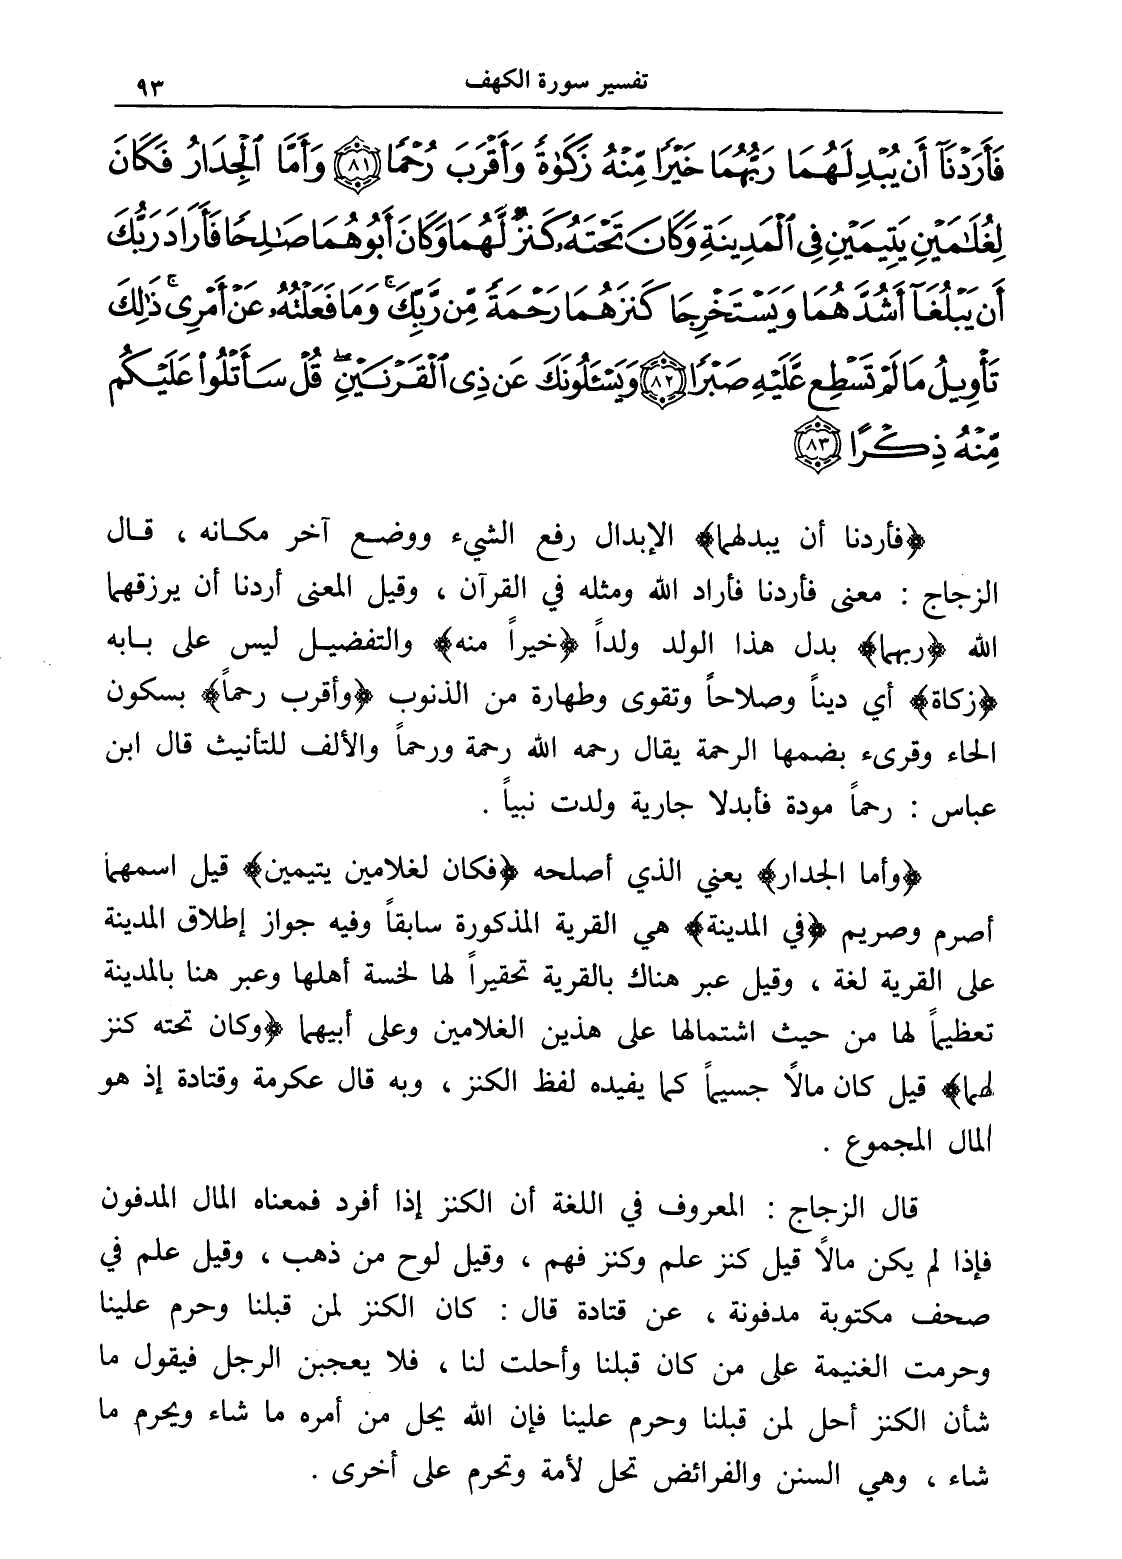 تفسير سورة الكهف ٩٣
فَأَرَدْنَآ أَن يُبْدِلَهُمَا رَبُّهُمَا خَيْرًا مِّنْهُ زَكَوٰةً وَأَقْرَبَ رُحْمًا ﴿٨١﴾ وَأَمَّا ٱلْجِدَارُ فَكَانَ
لِغُلَـٰمَيْنِ يَتِيمَيْنِ فِى ٱلْمَدِينَةِ وَكَانَ تَحْتَهُۥ كَنزٌ لَّهُمَا وَكَانَ أَبُوهُمَا صَـٰلِحًا فَأَرَادَ رَبُّكَ
أَن يَبْلُغَآ أَشُدَّهُمَا وَيَسْتَخْرِجَا كَنزَهُمَا رَحْمَةً مِّن رَّبِّكَ ۚ وَمَا فَعَلْتُهُۥ عَنْ أَمْرِى ۚ ذَٰلِكَ
تَأْوِيلُ مَا لَمْ تَسْطِع عَّلَيْهِ صَبْرًا ﴿٨٢﴾ وَيَسْـَٔلُونَكَ عَن ذِى ٱلْقَرْنَيْنِ ۖ قُلْ سَأَتْلُوا۟ عَلَيْكُم
مِّنْهُ ذِكْرًا ﴿٨٣﴾
﴿فأردنا أن يبدلهما﴾ الإبدال رفع الشيء ووضع آخر مكانه ، قال
الزجاج : معنى فأردنا فأراد الله ومثله في القرآن ، وقيل المعنى أردنا أن يرزقهما
الله ﴿ربهما﴾ بدل هذا الولد ولداً ﴿خيراً منه﴾ والتفضيل ليس على بابه
﴿زكاة﴾ أي ديناً وصلاحاً وتقوى وطهارة من الذنوب ﴿وأقرب رحماً﴾ بسكون
الحاء وقرىء بضمها الرحمة يقال رحمه الله رحمة ورحماً والألف للتأنيث قال ابن
عباس : رحماً مودة فأبدلا جارية ولدت نبياً .
﴿وأما الجدار﴾ يعني الذي أصلحه ﴿فكان لغلامين يتيمين﴾ قيل اسمهما
أصرم وصريم ﴿في المدينة﴾ هي القرية المذكورة سابقاً وفيه جواز إطلاق المدينة
على القرية لغة ، وقيل عبر هناك بالقرية تحقيراً لها لخسة أهلها وعبر هنا بالمدينة
تعظيماً لها من حيث اشتمالها على هذين الغلامين وعلى أبيهما ﴿وكان تحته كنز
لهما﴾ قيل كان مالاً جسيماً كما يفيده لفظ الكنز ، وبه قال عكرمة وقتادة إذ هو
المال المجموع .
قال الزجاج : المعروف في اللغة أن الكنز إذا أفرد فمعناه المال المدفون
فإذا لم يكن مالاً قيل كنز علم وكنز فهم ، وقيل لوح من ذهب ، وقيل علم في
صحف مكتوبة مدفونة ، عن قتادة قال : كان الكنز لمن قبلنا وحرم علينا
وحرمت الغنيمة على من كان قبلنا وأحلت لنا ، فلا يعجبن الرجل فيقول ما
شأن الكنز أحل لمن قبلنا وحرم علينا فإن الله يحل من أمره ما شاء ويحرم ما
شاء ، وهي السنن والفرائض تحل لأمة وتحرم على أخرى .